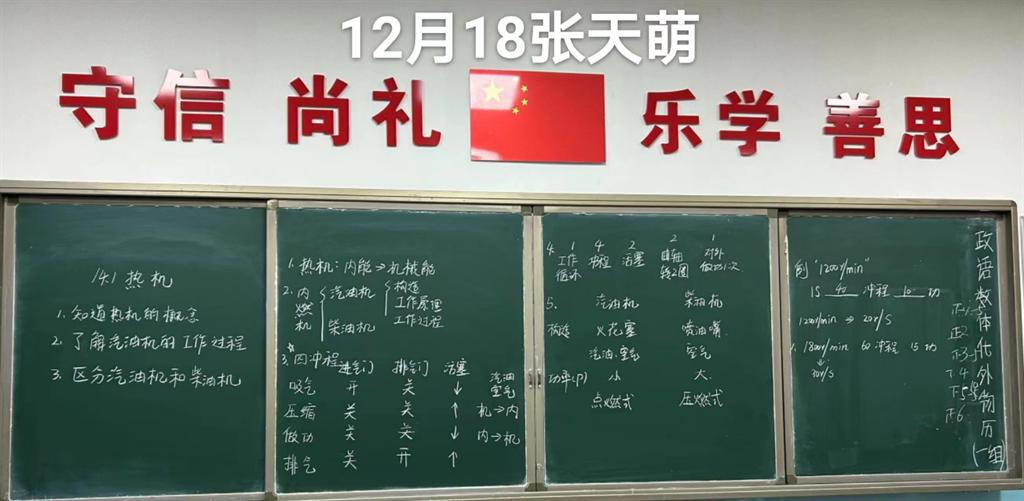 12月18张天萌
守信 尚礼 乐学 善思
14.1 热机
1. 知道热机的概念
2. 了解汽油机的工作过程
3. 区分汽油机和柴油机
1. 热机：内能→机械能
2. 内燃机 { 汽油机 { 构造
工作原理
工作过程
柴油机
3. 四冲程 进气门 排气门 活塞
吸气 开 关 ↓ 汽油 空气
压缩 关 关 ↑ 机→内
做功 关 关 ↓ 内→机
排气 关 开 ↑
4. 1 4 2 2 1
工作循环 冲程 活塞 曲轴转2圈 对外做功1次
5. 汽油机 柴油机
构造 火花塞 喷油嘴
汽油、空气 空气
功率(P) 小 大
点燃式 压燃式
例 "1200r/min"
1S 40 冲程 10 功
1200r/min → 20r/s
1800r/min 60 冲程 15 功
↓
30r/s
政语数体代外物历(一组)